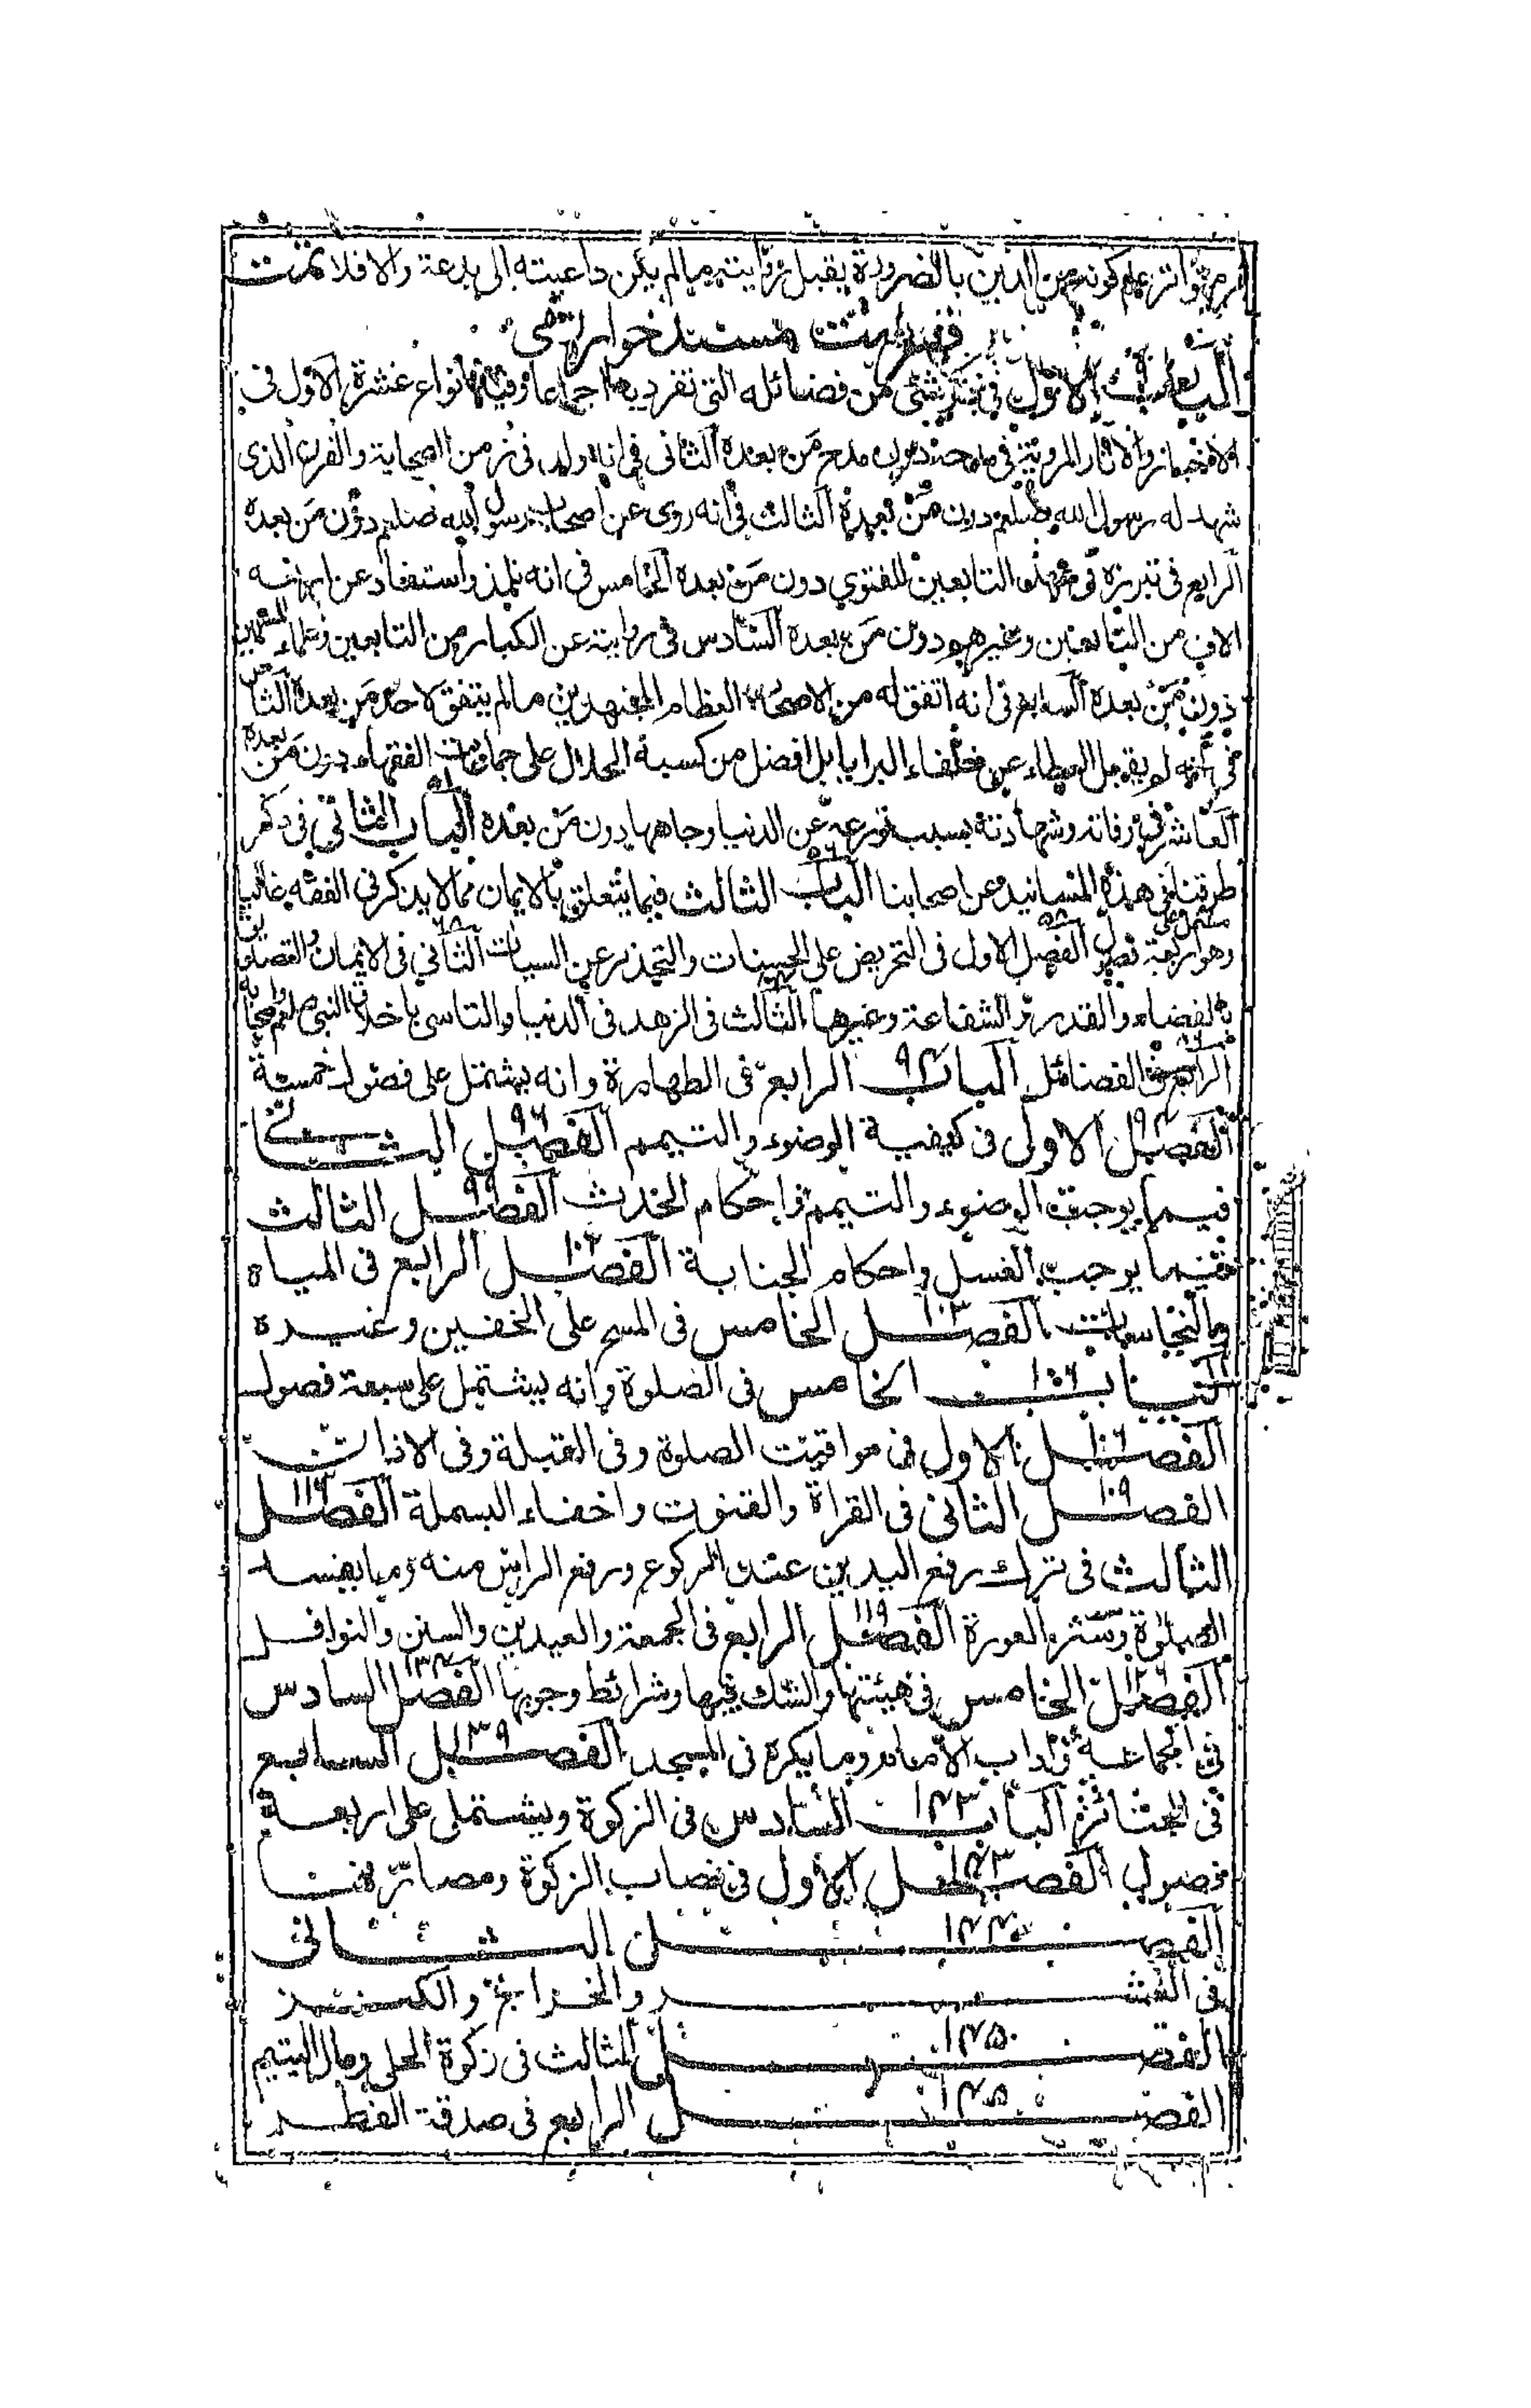 تواتر علم كونه من الدين بالضرورة يقبل روايته مالم يكن داعيته الى بدعة والا فلا تمت
فهرست مسند خوارزمی
الباب الاول في ذكر شئ من فضائله التي تفرد بها اجماعا وفيه انواع عشرة الاول في
الاخبار والآثار المروية في مدحه دون مدح من بعده الثاني في انه ولد في زمن الصحابة والقرن الذي
شهد له رسول الله صلعم دون من بعده الثالث في انه روى عن اصحاب رسول الله صلعم دون من بعده
الرابع في تبرزه في عهد التابعين للفتوي دون من بعده الخامس في انه تلمذ واستفاد عن اربعة
الاف من التابعين وغيرهم دون من بعده السادس في رواية عن الكبار من التابعين وعلماء المسلمين
دون من بعده السابع في انه اتفق له من الاصحاب العظام المجتهدين مالم يتفق لاحد من بعده الثامن
في انه لم يقبل العطاء عن خلفاء البرايا بل افضل من كسبه الحلال على جماعات الفقهاء دون من بعده
العاشر في وفاته وشهادته بسبب تورعه عن الدنيا وجاهها دون من بعده الباب الثاني في ذكر
طرقنا في هذه المسانيد عن اصحابنا الباب الثالث فيما يتعلق بالايمان مما لا يذكر في الفقه غالبا
وهو مشتمل على اربعة فصول الفصل الاول في التحريض على الحسنات والتحذير عن السيات الثاني في الايمان والتصديق
بالقضاء والقدر والشفاعة وغيرها الثالث في الزهد في الدنيا والتاسي باخلاق النبي صلعم واصحابه
الرابع في الفضائل الباب ٩٤ الرابع في الطهارة وانه يشتمل على فصول خمسة
الفصل ٩٤ الاول في كيفية الوضوء والتيمم الفصل ٩٦ الثاني
فيما يوجب الوضوء والتيمم واحكام الحدث الفصل ٩٩ الثالث
فيما يوجب الغسل واحكام الجنابة الفصل الرابع في المياه
والنجاسات الفصل ١٠٣ الخامس في المسح على الخفين وغيره
الباب ١٠٦ الخامس في الصلوة وانه يشتمل على سبعة فصول
الفصل ١٠٦ الاول في مواقيت الصلوة وفي القبلة وفي الاذان
الفصل ١٠٩ الثاني في القراة والقنوت واخفاء البسملة الفصل ١١٣
الثالث في ترك رفع اليدين عند الركوع ورفع الراس منه وما يفسد
الصلوة وستر العورة الفصل ١١٩ الرابع في الجمعة والعيدين والسنن والنوافل
الفصل ١٢٦ الخامس في هيئتها والشك فيها وشرائط وجوبها الفصل ١٣٤ السادس
في الجماعة واداب الامامة وما يكره في المسجد الفصل ١٣٩ السابع
في الجنائز الباب ١٤٣ السادس في الزكوة ويشتمل على اربعة
فصول الفصل ١٤٣ الاول في نصاب الزكوة ومصارفها
الفصل ١٤٤ الثاني
في العشر والخراج والكنز
الفصل ١٤٥ الثالث في زكوة الحلى ومال اليتيم
الفصل ١٤٥ الرابع في صدقة الفطر